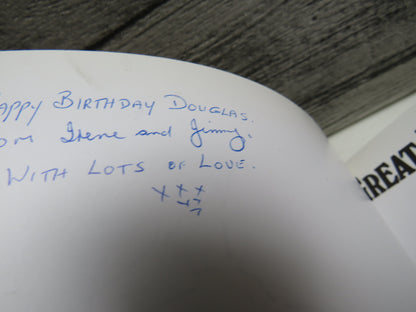 APPY BIRTHDAY DOUGLAS.
OM Irene and Jimmy.
WITH LOTS OF LOVE.
x x x
x x
x
GREAT